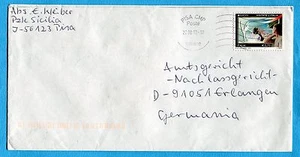 Abs. E. Weber
P.zle Sicilia
I-56123 Pisa
PISA CMP
Poste
Amtsgericht
-Nachlassgericht-
D-91054 Erlangen
Germania